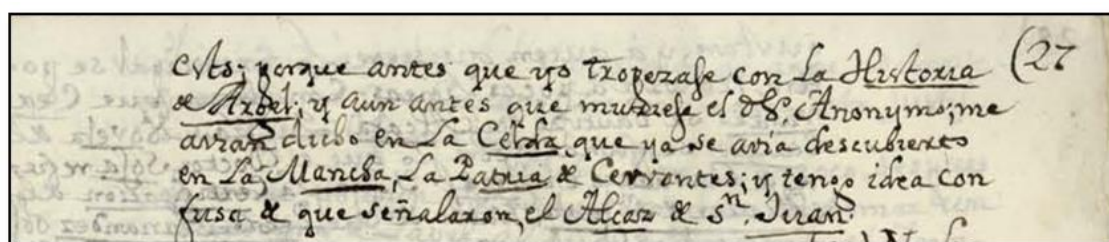 cvto; porque antes que yo tropezase con la Historia (27
de Arbel; y aun antes que muriese el dho. Anonymo; me
avian dicho en La Celda, que ya se avia descubierto
en La Mancha, La Patria de Cervantes; y tengo idea con
fusa de que señalaron, el Alcazar de Sn. Juan.